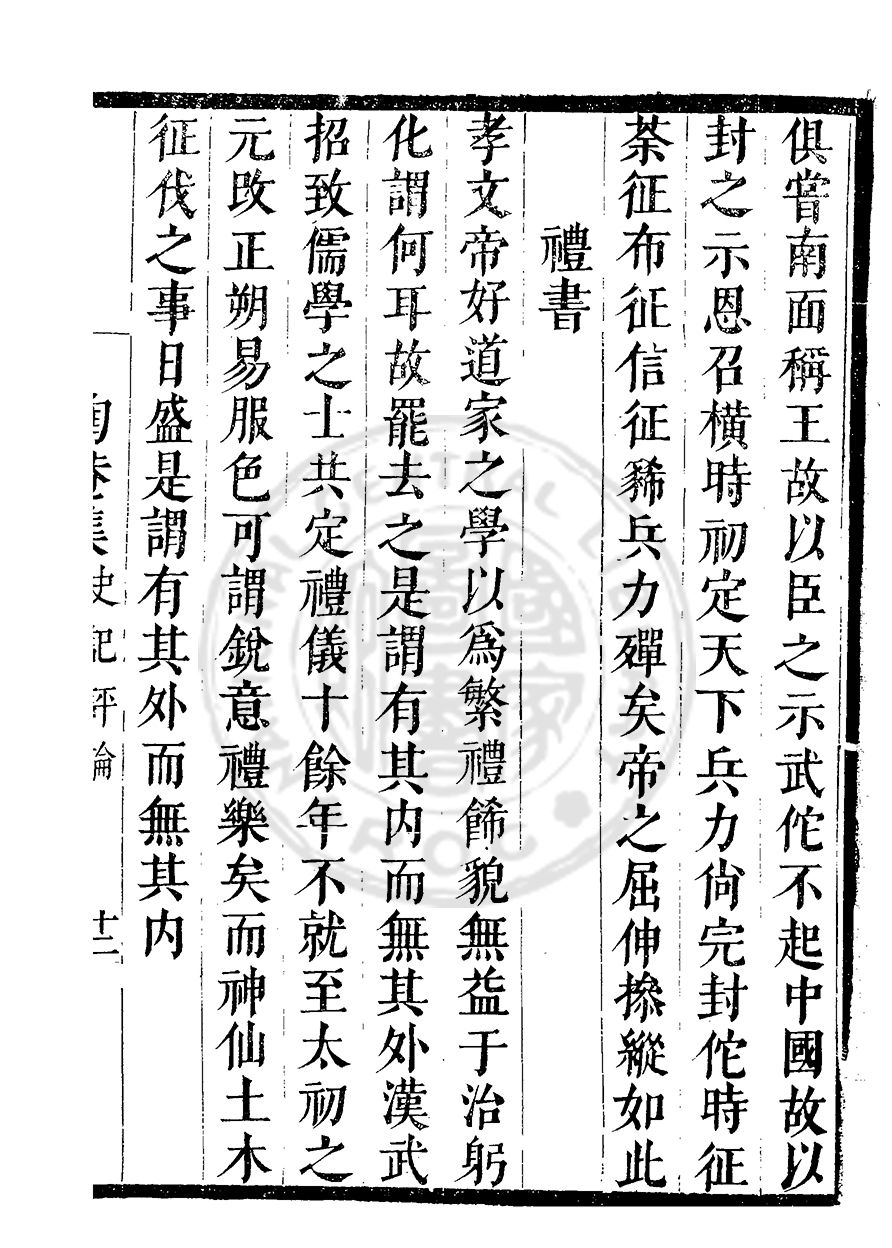 俱嘗南面稱王故以臣之示武佗不起中國故以
封之示恩召橫時初定天下兵力尙完封佗時征
荼征布征信征豨兵力殫矣帝之屈伸摻縱如此
禮書
孝文帝好道家之學以爲繁禮飾貌無益于治躬
化謂何耳故罷去之是謂有其內而無其外漢武
招致儒學之士共定禮儀十餘年不就至太初之
元改正朔易服色可謂銳意禮樂矣而神仙土木
征伐之事日盛是謂有其外而無其內
陶菴集史記評論 十二